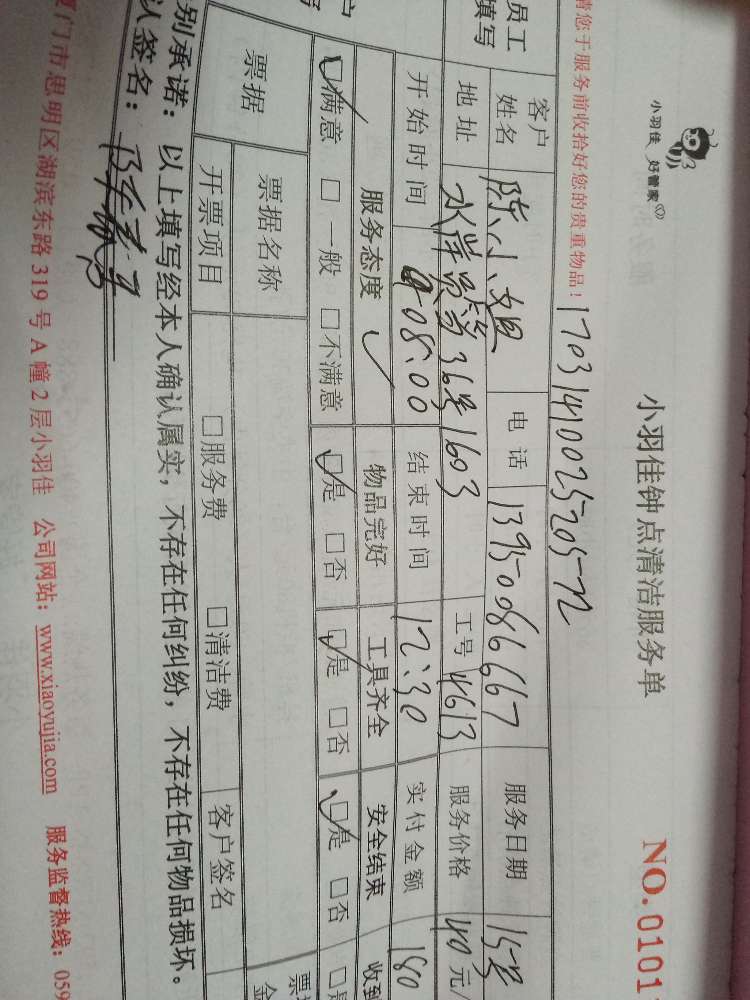 小羽佳 好管家
小羽佳钟点清洁服务单
NO.0101
请您于服务前收拾好您的贵重物品!
1703141002520572
员工
填写
客户姓名 陈小姐 电话 13950086667 服务日期 15号
地址 水岸 36号1603 工号 4613 服务价格 40元/
开始时间 08:00 结束时间 12:30 实付金额 180
服务态度 物品完好 工具齐全 安全结束 收到
☑满意 □一般 □不满意 ☑是 □否 ☑是 □否 ☑是 □否 □是
票据 票据名称 票 金
开票项目 □服务费 □清洁费 客户签名
别承诺:以上填写经本人确认属实,不存在任何纠纷,不存在任何物品损坏。
认签名:
厦门市思明区湖滨东路 319 号 A 幢 2 层小羽佳 公司网站:www.xiaoyujia.com 服务监督热线:059